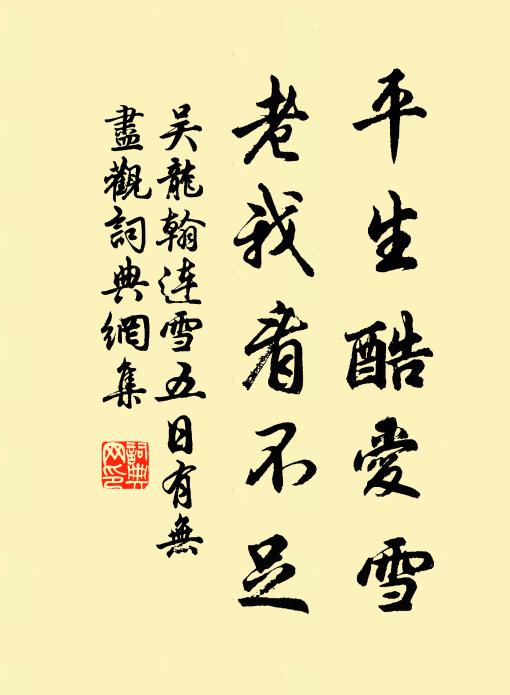 平生酷愛雪
老我看不足
吳龍翰連雪五日有無
盡觀詞典網集
詞典
网印